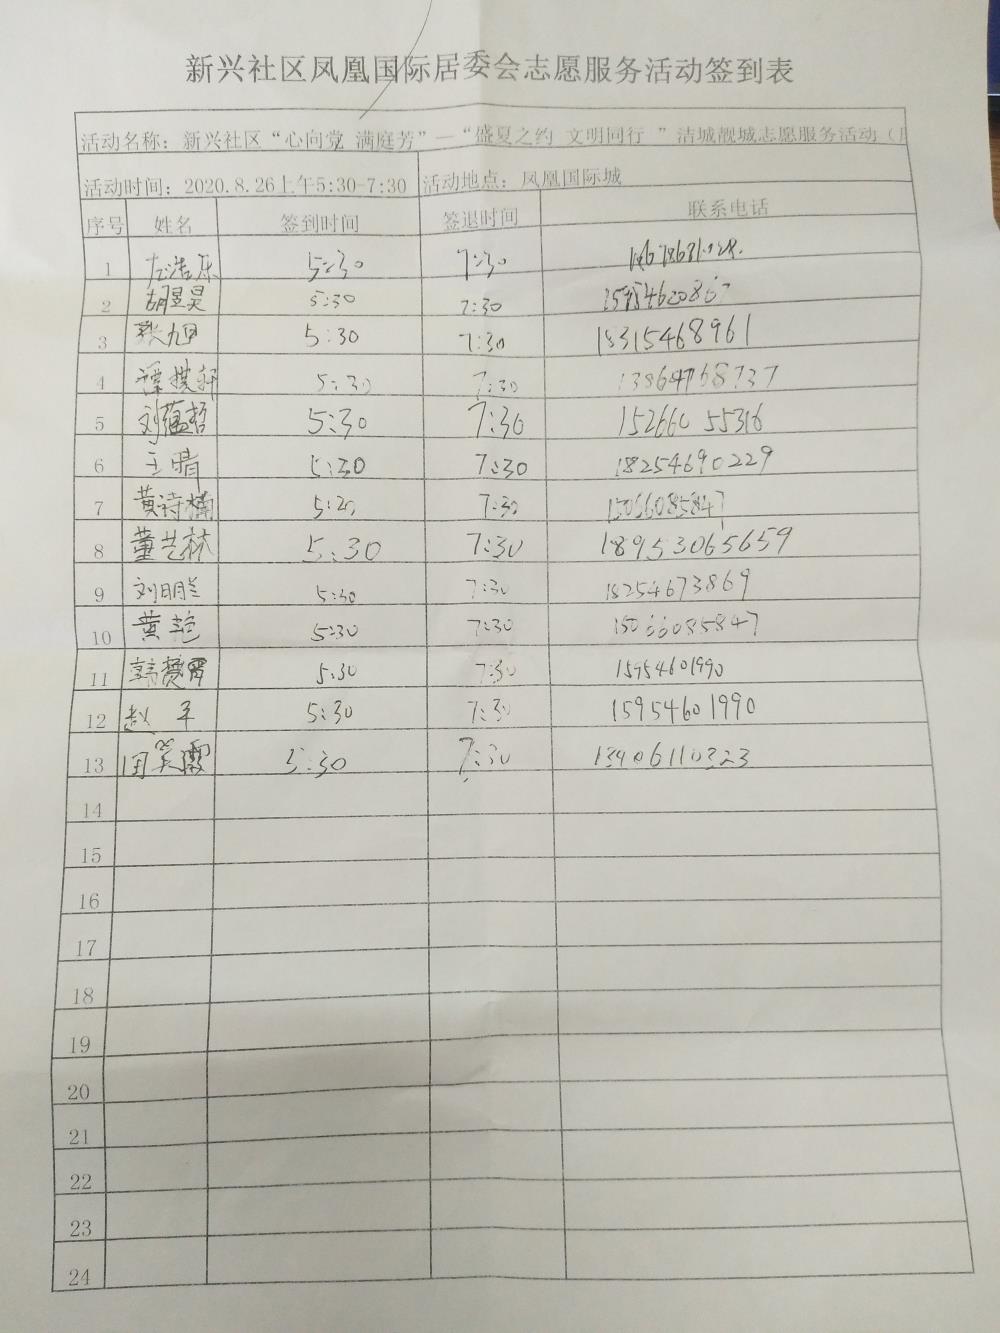 新兴社区凤凰国际居委会志愿服务活动签到表
活动名称：新兴社区“心向党 满庭芳”—“盛夏之约 文明同行 ”洁城靓城志愿服务活动（
活动时间：2020.8.26上午5:30-7:30 活动地点：凤凰国际城
序号 姓名 签到时间 签退时间 联系电话
1 左浩东 5:30 7:30
2 胡昱昊 5:30 7:30
3 张旭 5:30 7:30 18315468961
4 5:30 7:30 13864768737
5 刘蕴哲 5:30 7:30 15266055316
6 王晴 5:30 7:30 18254690229
7 黄诗楠 5:20 7:30 15066085847
8 董艺林 5:30 7:30 18953065659
9 刘明兰 5:30 7:30 18254673869
10 黄艳 5:30 7:30 15066085847
11 5:30 7:30 15954601990
12 赵平 5:30 7:30 15954601990
13 田英霞 5:30 7:30 13406110323
14
15
16
17
18
19
20
21
22
23
24